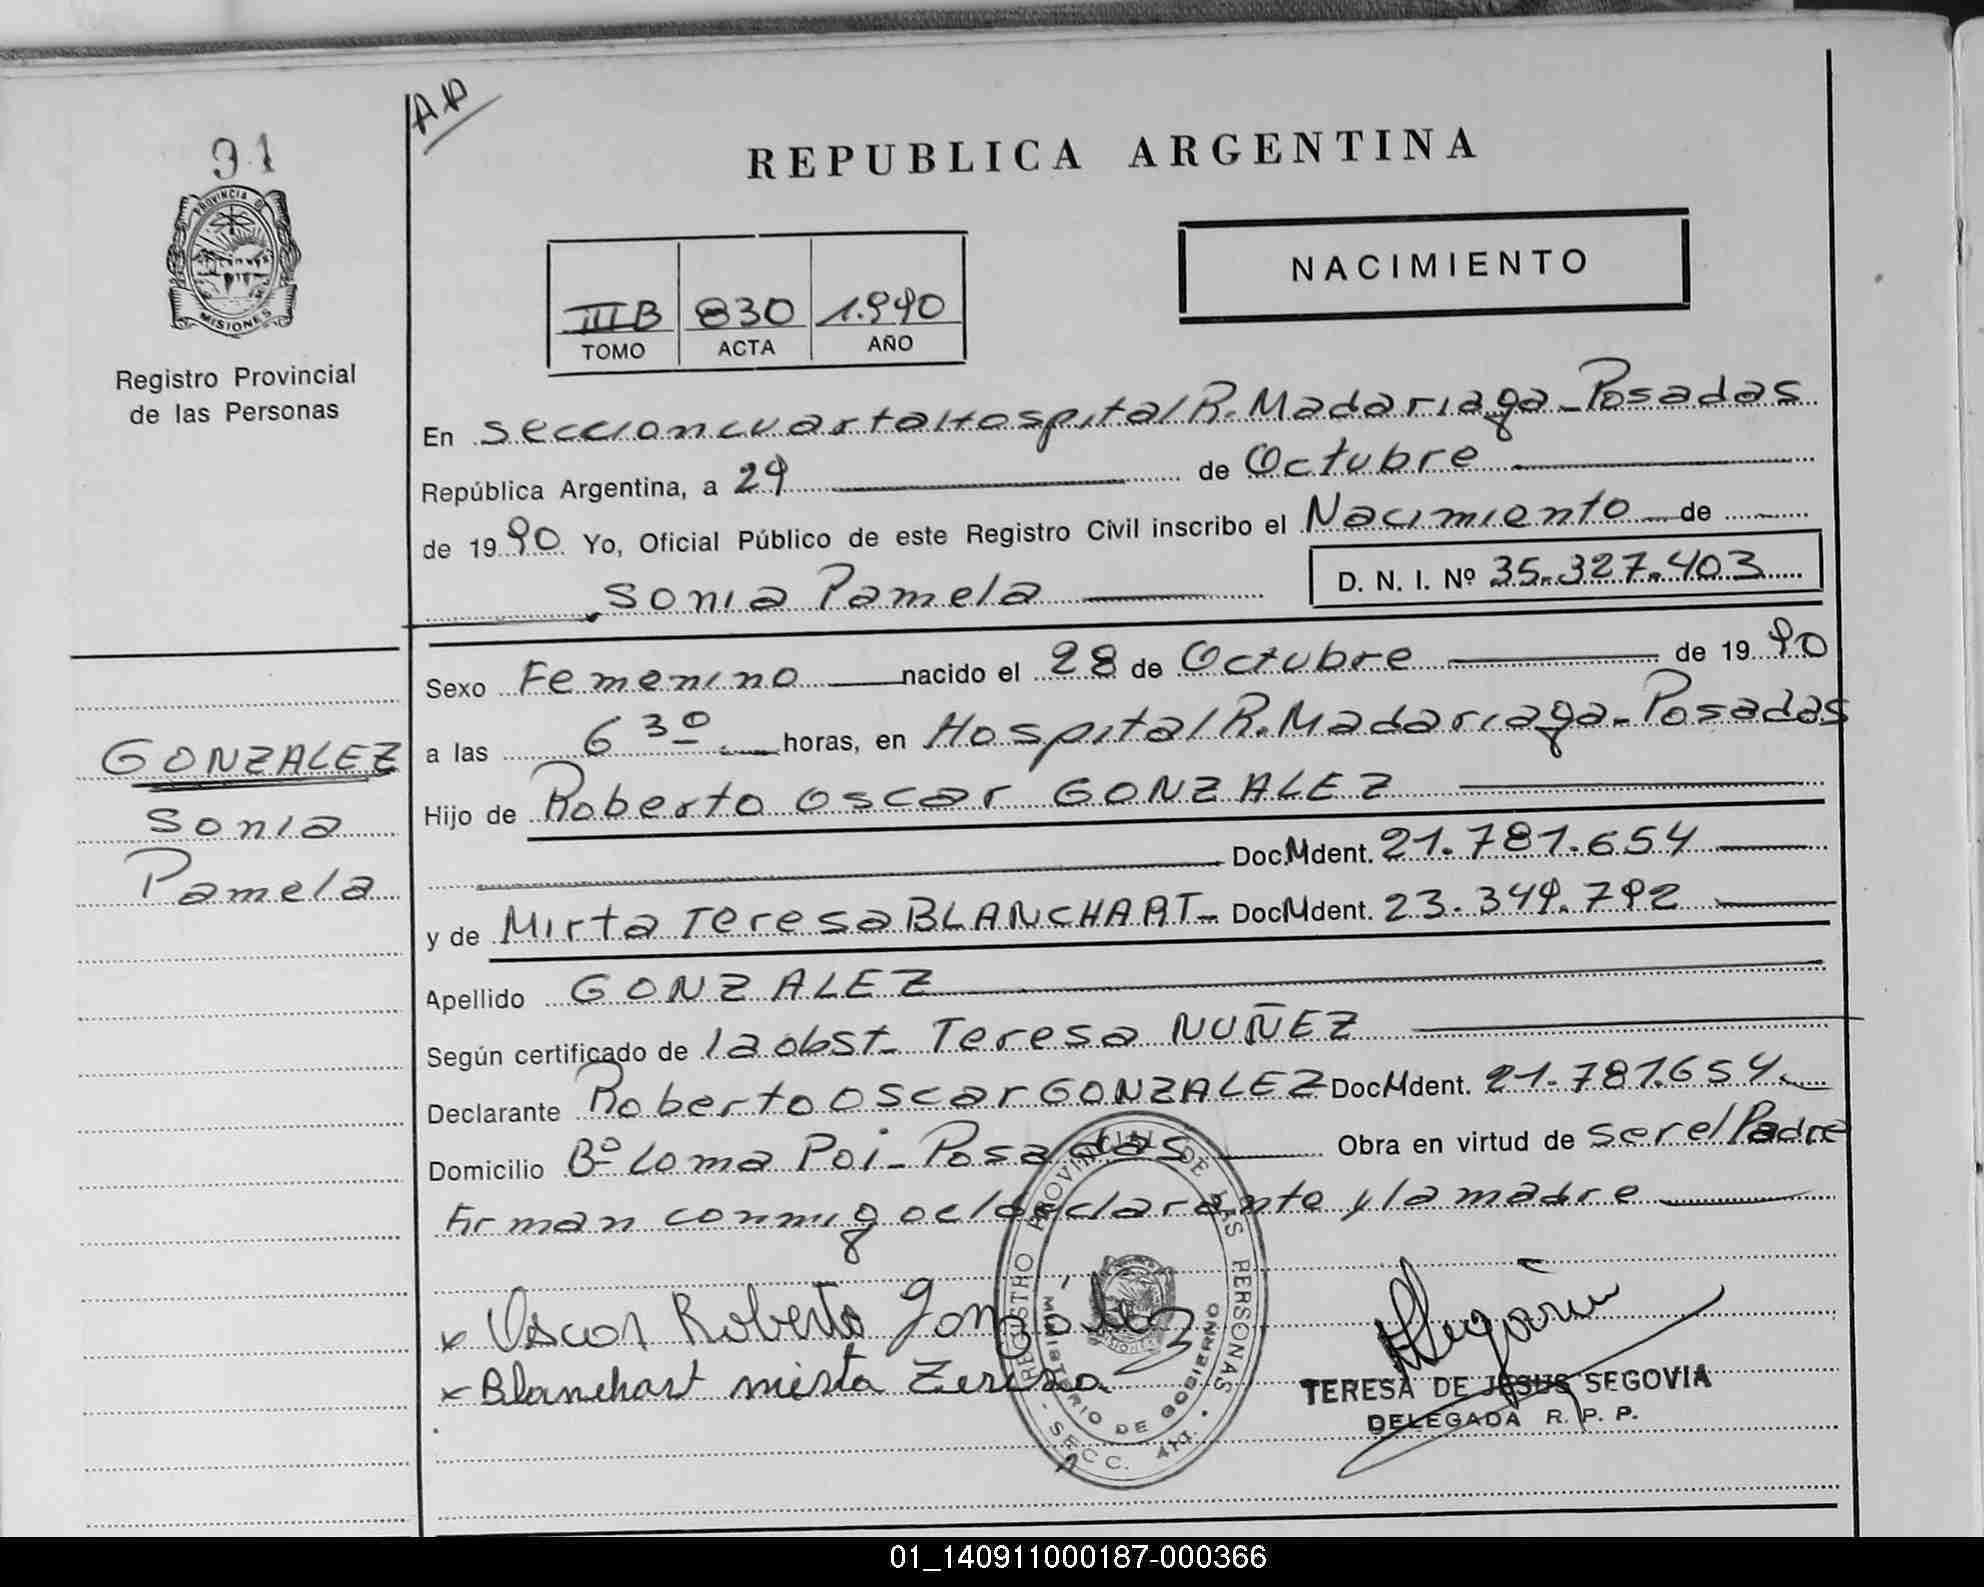 AD
91
REPUBLICA ARGENTINA
PROVINCIA D
MISIONES
NACIMIENTO
IIIB 830 1.990
TOMO ACTA AÑO
Registro Provincial
de las Personas
En Seccion cuarta Hospital R. Madariaga - Posadas
República Argentina, a 29 de Octubre
de 1990 Yo, Oficial Público de este Registro Civil inscribo el Nacimiento de
Sonia Pamela D. N. I. Nº 35.327.403
Sexo Femenino nacido el 28 de Octubre de 1990
a las 6 30 horas, en Hospital R. Madariaga - Posadas
GONZALEZ
Sonia
Pamela
Hijo de Roberto Oscar GONZALEZ
Doc. M dent. 21.781.654
y de Mirta Teresa BLANCHART - Doc M dent. 23.349.792
Apellido GONZALEZ
Según certificado de la obst. Teresa NUÑEZ
Declarante Roberto Oscar GONZALEZ Doc M dent. 21.781.654
Domicilio Bº Loma Poi - Posadas Obra en virtud de ser el Padre
Firman conmigo el declarante y la madre
x Oscar Roberto González
x Blanchart mirta Teresa
REGISTRO PROVINCIAL DE LAS PERSONAS
MINISTERIO DE GOBIERNO
- SECC. 4ta. -
Segovia
TERESA DE JESUS SEGOVIA
DELEGADA R. P. P.
01_140911000187-000366